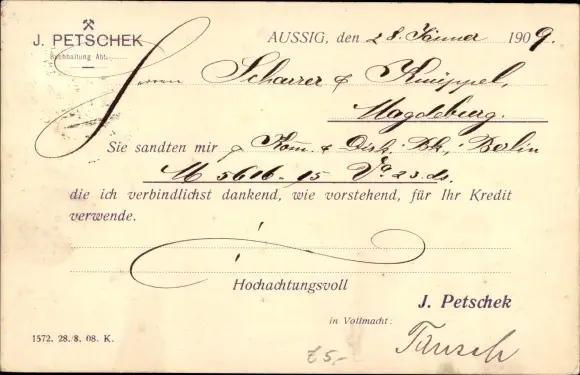 J. PETSCHEK
Buchhaltung Abt.
AUSSIG, den 28. Jänner 1909.
Herren Scharrer & Knüppel,
Magdeburg.
Sie sandten mir p Kom. & Disk. Bk., Berlin
M 5616.15 Va. 23. ds.
die ich verbindlichst dankend, wie vorstehend, für Ihr Kredit
verwende.
Hochachtungsvoll
J. Petschek
in Vollmacht:
1572. 28./8. 08. K.
£5,-